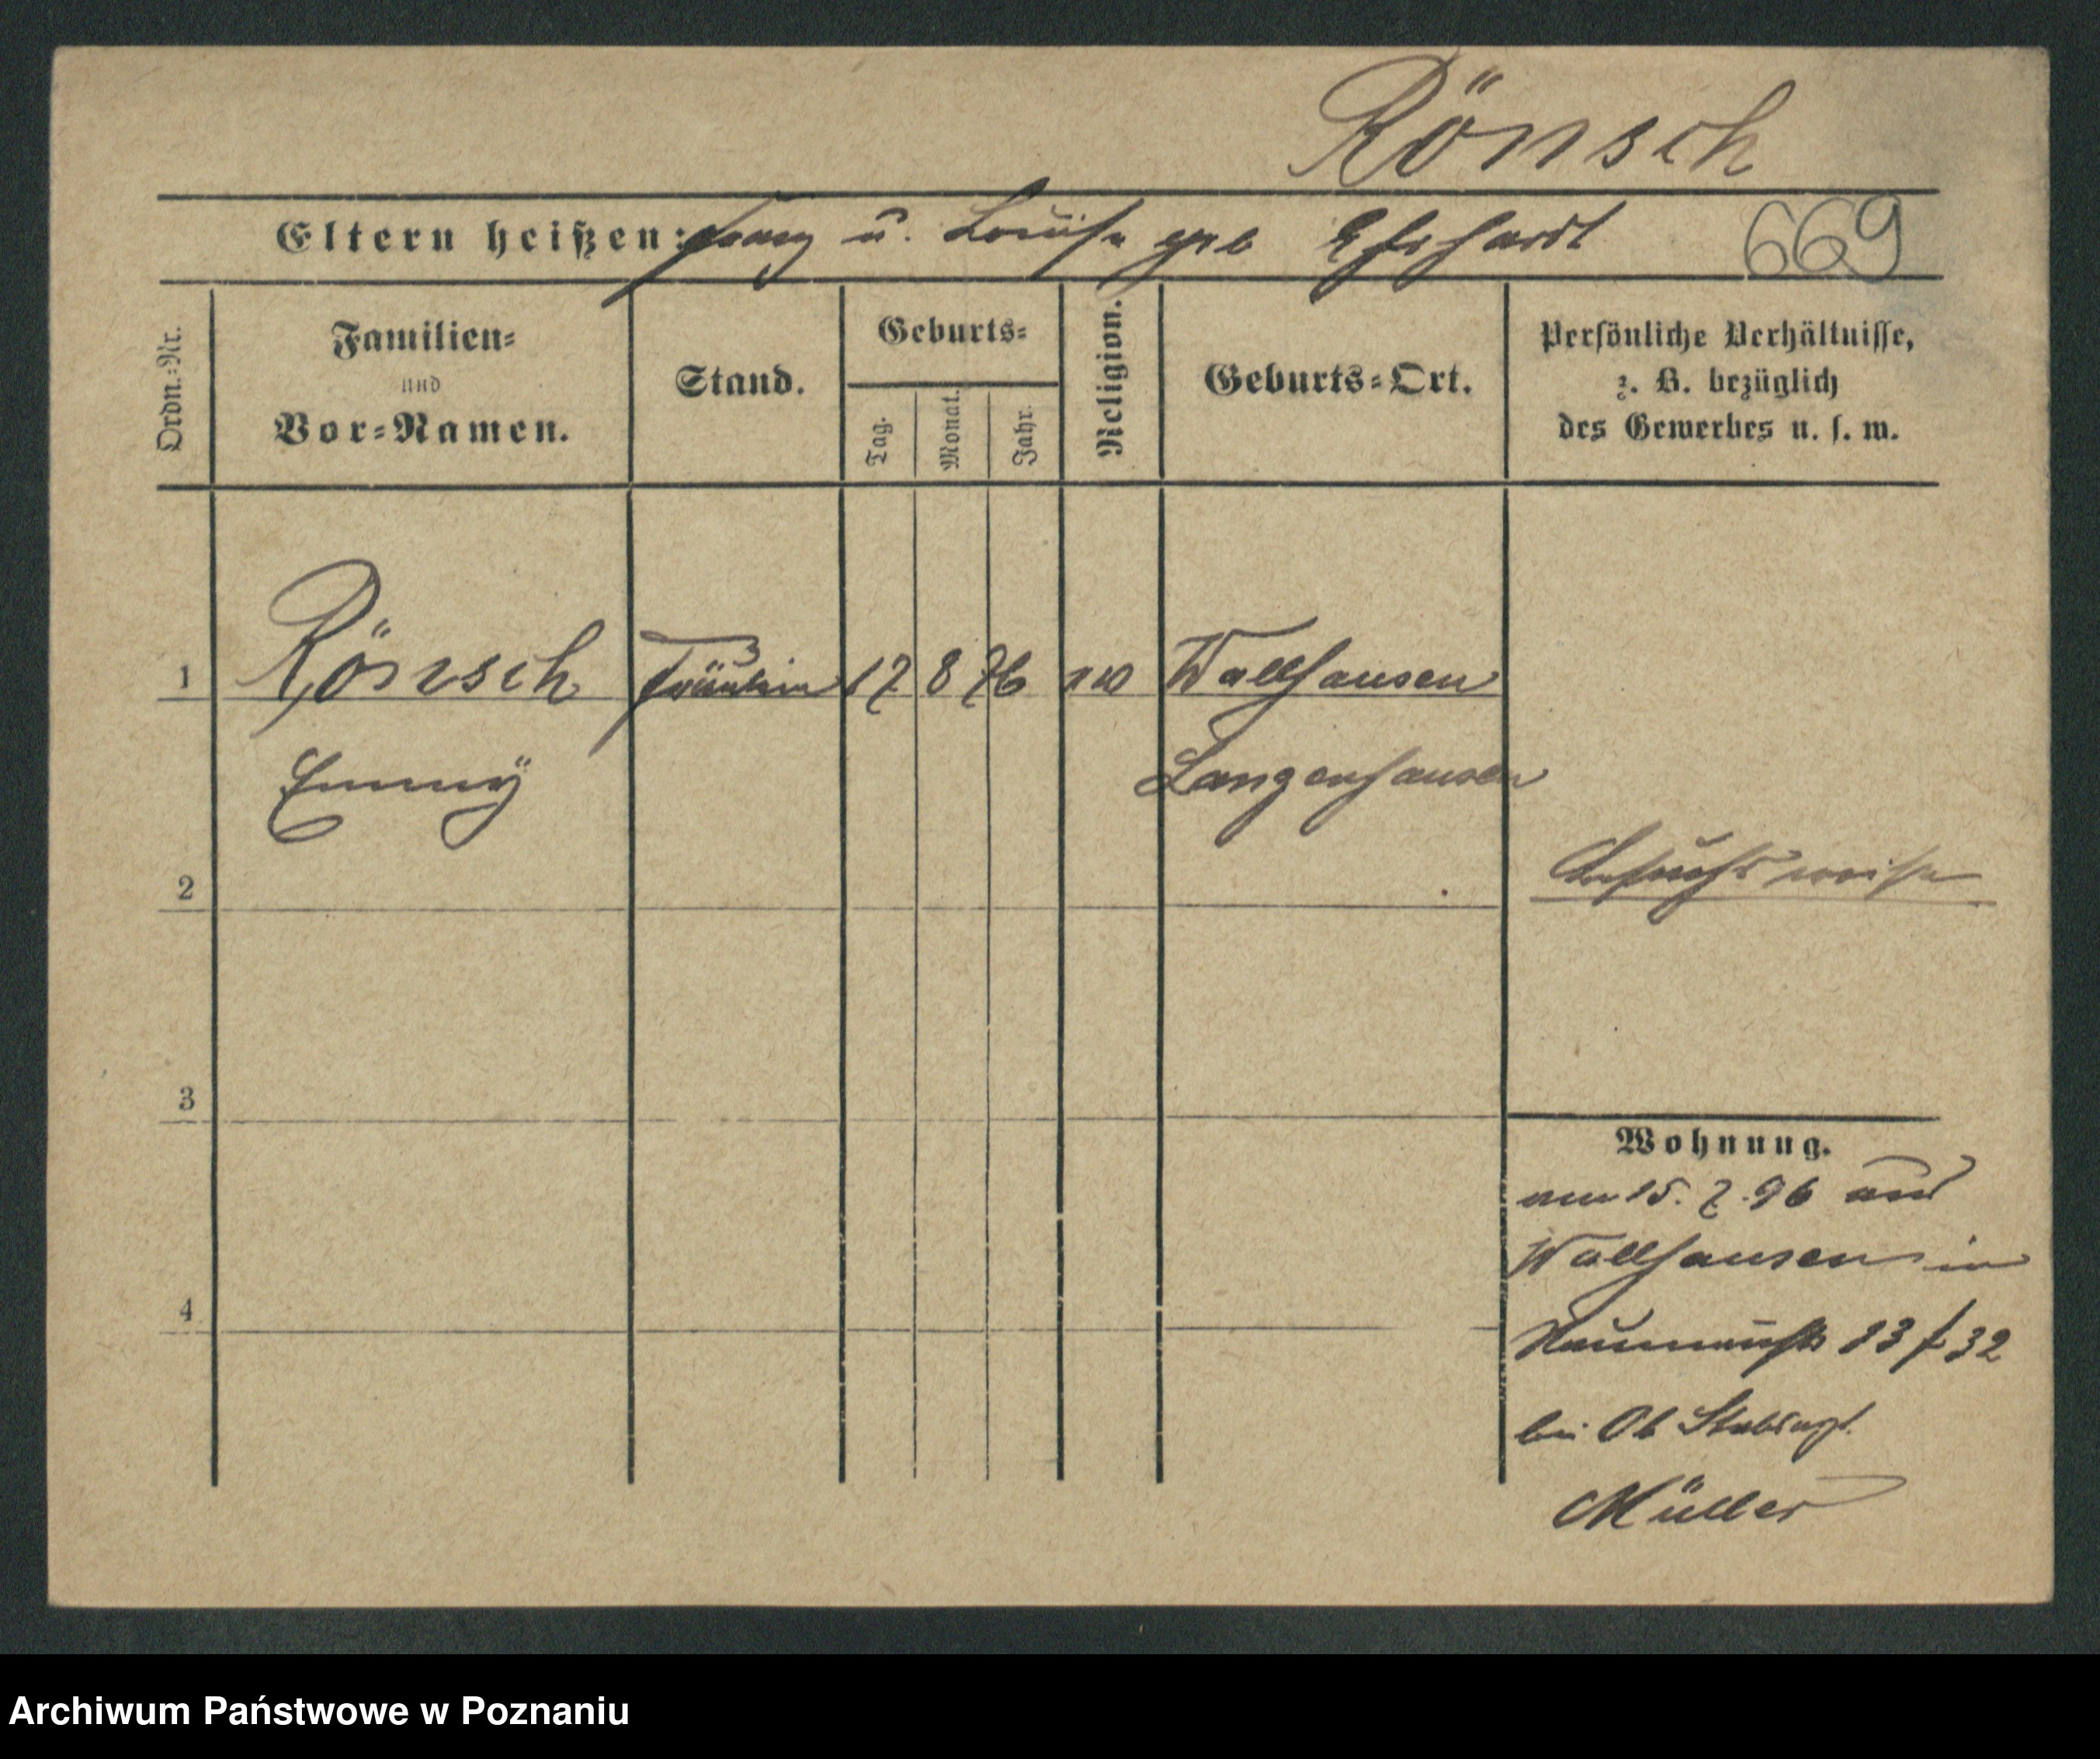 Rönsch
Eltern heißen: Franz u. Louise geb Ehrhardt 669
Ordn.=Nr.
Familien=
und
Vor=Namen.
Stand.
Geburts=
Tag.
Monat.
Jahr.
Religion.
Geburts=Ort.
Persönliche Verhältnisse,
z. B. bezüglich
des Gewerbes u. s. w.
1 Rönsch Fräulein 17 8 76 ev Wallhausen
Emmy Langenhausen
2 Besuchsweise
3
Wohnung.
am 15. 7. 96 aus
Wallhausen in
4 Naumannstr 13 f 32
bei Ob Stabsarzt
Müller
Archiwum Państwowe w Poznaniu